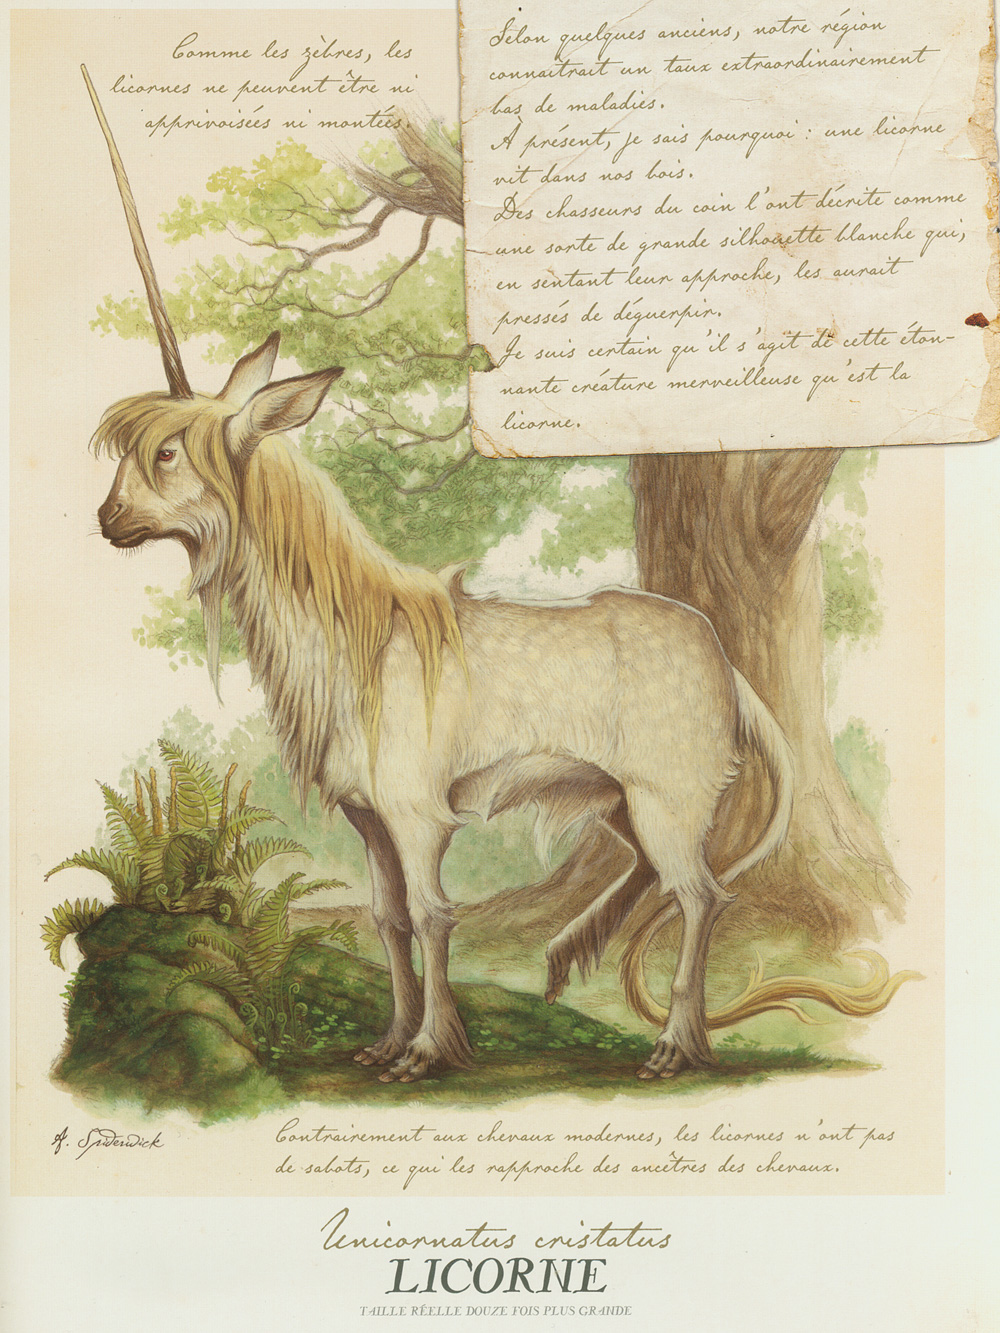 Comme les zèbres, les
licornes ne peuvent être ni
apprivoisées ni montées.
Selon quelques anciens, notre région
connaîtrait un taux extraordinairement
bas de maladies.
À présent, je sais pourquoi : une licorne
vit dans nos bois.
Des chasseurs du coin l'ont décrite comme
une sorte de grande silhouette blanche qui,
en sentant leur approche, les aurait
pressés de déguerpir.
Je suis certain qu'il s'agit de cette éton-
nante créature merveilleuse qu'est la
licorne.
A. Spiderwick
Contrairement aux chevaux modernes, les licornes n'ont pas
de sabots, ce qui les rapproche des ancêtres des chevaux.
Unicornatus cristatus
LICORNE
TAILLE RÉELLE DOUZE FOIS PLUS GRANDE